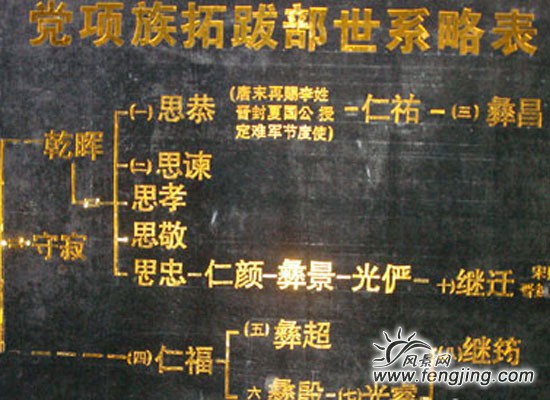 党项族拓跋部世系略表
(一)思恭(唐末再赐李姓
晋封夏国公 授
定难军节度使)仁祐(三)彝昌
乾晖
(二)思谏
思孝
守寂
思敬
思忠-仁颜-彝景-光俨-十)继迁
(五)彝超
(四)仁福
(八)继筠
六 彝殷-(七)光睿
风景网
www.fengjing.com